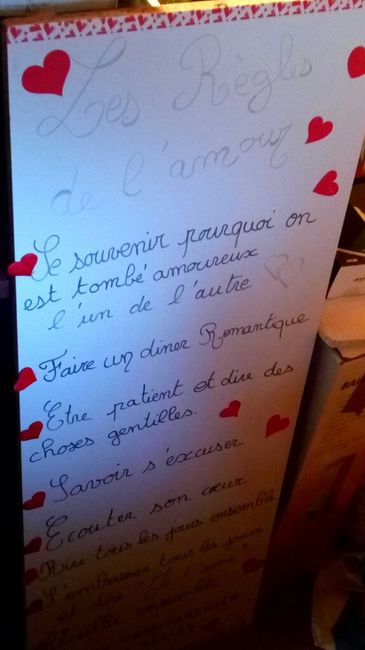 Les Règles
de l'amour
Se souvenir pourquoi on
est tombé amoureux
l'un de l'autre
Faire un diner Romantique
Etre patient et dire des
choses gentilles.
Savoir s'excuser
Ecouter son cœur
Rire tous les jours ensemble
S'embrasser tous les jours
et dire "Je t'aime"
Vieillir ensemble